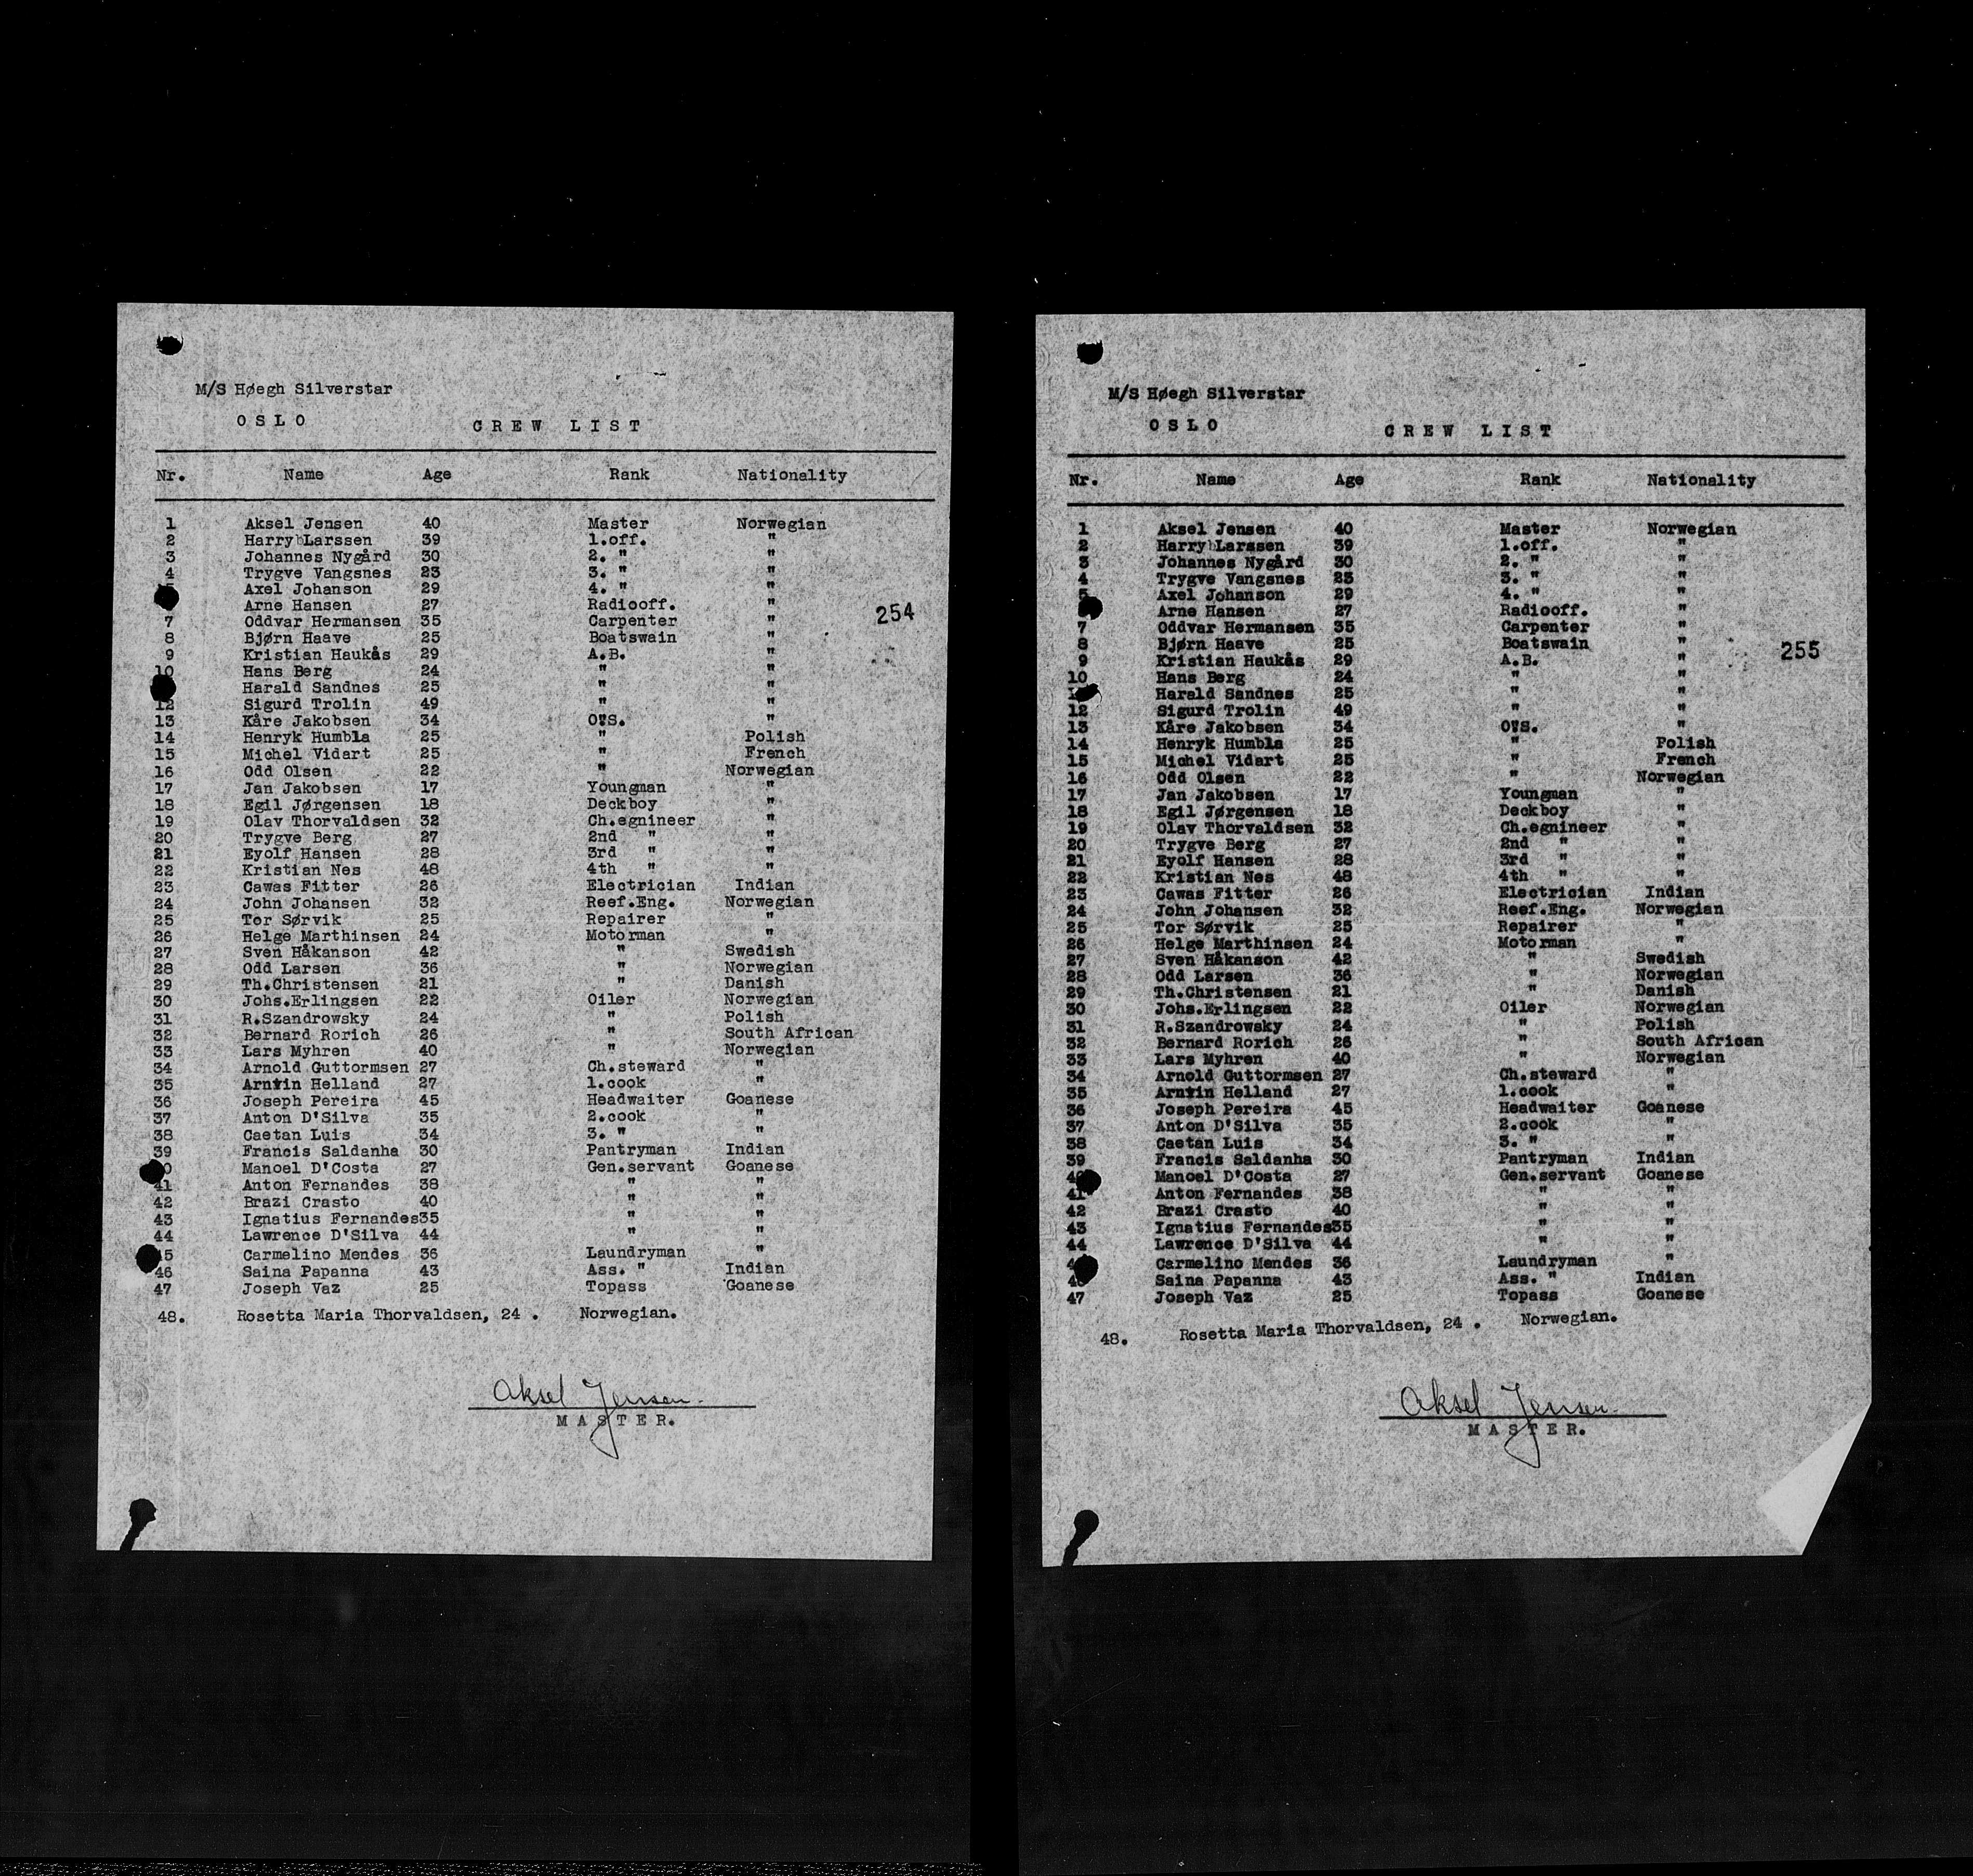 M/S Høegh Silverstar
OSLO CREW LIST
Nr. Name Age Rank Nationality
1 Aksel Jensen 40 Master Norwegian
2 Harry Larssen 39 1.off. "
3 Johannes Nygård 30 2. " "
4 Trygve Vangsnes 23 3. " "
5 Axel Johanson 29 4. " "
Arne Hansen 27 Radiooff. "
7 Oddvar Hermansen 35 Carpenter "
8 Bjørn Haave 25 Boatswain "
9 Kristian Haukås 29 A.B. "
10 Hans Berg 24 " "
Harald Sandnes 25 " "
12 Sigurd Trolin 49 " "
13 Kåre Jakobsen 34 O.S. "
14 Henryk Humbla 25 " Polish
15 Michel Vidart 25 " French
16 Odd Olsen 22 " Norwegian
17 Jan Jakobsen 17 Youngman "
18 Egil Jørgensen 18 Deckboy "
19 Olav Thorvaldsen 32 Ch.egnineer "
20 Trygve Berg 27 2nd " "
21 Eyolf Hansen 28 3rd " "
22 Kristian Nes 48 4th " "
23 Cawas Fitter 26 Electrician Indian
24 John Johansen 32 Reef.Eng. Norwegian
25 Tor Sørvik 25 Repairer "
26 Helge Marthinsen 24 Motorman "
27 Sven Håkanson 42 " Swedish
28 Odd Larsen 36 " Norwegian
29 Th.Christensen 21 " Danish
30 Johs.Erlingsen 22 Oiler Norwegian
31 R.Szandrowsky 24 " Polish
32 Bernard Rorich 26 " South African
33 Lars Myhren 40 " Norwegian
34 Arnold Guttormsen 27 Ch.steward "
35 Helland 27 1.cook "
36 Joseph Pereira 45 Headwaiter Goanese
37 Anton D'Silva 35 2.cook "
38 Caetan Luis 34 3. " "
39 Francis Saldanha 30 Pantryman Indian
Manoel D'Costa 27 Gen.servant Goanese
41 Anton Fernandes 38 " "
42 Brazi Crasto 40 " "
43 Ignatius Fernandes35 " "
44 Lawrence D'Silva 44 " "
Carmelino Mendes 36 Laundryman "
46 Saina Papanna 43 Ass. " Indian
47 Joseph Vaz 25 Topass Goanese
48. Rosetta Maria Thorvaldsen, 24 . Norwegian.
Aksel Jensen.
MASTER.
254
M/S Høegh Silverstar
OSLO CREW LIST
Nr. Name Age Rank Nationality
1 Aksel Jensen 40 Master Norwegian
2 Harry Larssen 39 1.off. "
3 Johannes Nygård 30 2. " "
4 Trygve Vangsnes 23 3. " "
5 Axel Johanson 29 4. " "
Arne Hansen 27 Radiooff. "
7 Oddvar Hermansen 35 Carpenter "
8 Bjørn Haave 25 Boatswain "
9 Kristian Haukås 29 A.B. "
10 Hans Berg 24 " "
Harald Sandnes 25 " "
12 Sigurd Trolin 49 " "
13 Kåre Jakobsen 34 O.S. "
14 Henryk Humbla 25 " Polish
15 Michel Vidart 25 " French
16 Odd Olsen 22 " Norwegian
17 Jan Jakobsen 17 Youngman "
18 Egil Jørgensen 18 Deckboy "
19 Olav Thorvaldsen 32 Ch.egnineer "
20 Trygve Berg 27 2nd " "
21 Eyolf Hansen 28 3rd " "
22 Kristian Nes 48 4th " "
23 Cawas Fitter 26 Electrician Indian
24 John Johansen 32 Reef.Eng. Norwegian
25 Tor Sørvik 25 Repairer "
26 Helge Marthinsen 24 Motorman "
27 Sven Håkanson 42 " Swedish
28 Odd Larsen 36 " Norwegian
29 Th.Christensen 21 " Danish
30 Johs.Erlingsen 22 Oiler Norwegian
31 R.Szandrowsky 24 " Polish
32 Bernard Rorich 26 " South African
33 Lars Myhren 40 " Norwegian
34 Arnold Guttormsen 27 Ch.steward "
35 Helland 27 1.cook "
36 Joseph Pereira 45 Headwaiter Goanese
37 Anton D'Silva 35 2.cook "
38 Caetan Luis 34 3. " "
39 Francis Saldanha 30 Pantryman Indian
Manoel D'Costa 27 Gen.servant Goanese
41 Anton Fernandes 38 " "
42 Brazi Crasto 40 " "
43 Ignatius Fernandes35 " "
44 Lawrence D'Silva 44 " "
Carmelino Mendes 36 Laundryman "
Saina Papanna 43 Ass. " Indian
47 Joseph Vaz 25 Topass Goanese
48. Rosetta Maria Thorvaldsen, 24 . Norwegian.
Aksel Jensen.
MASTER.
255